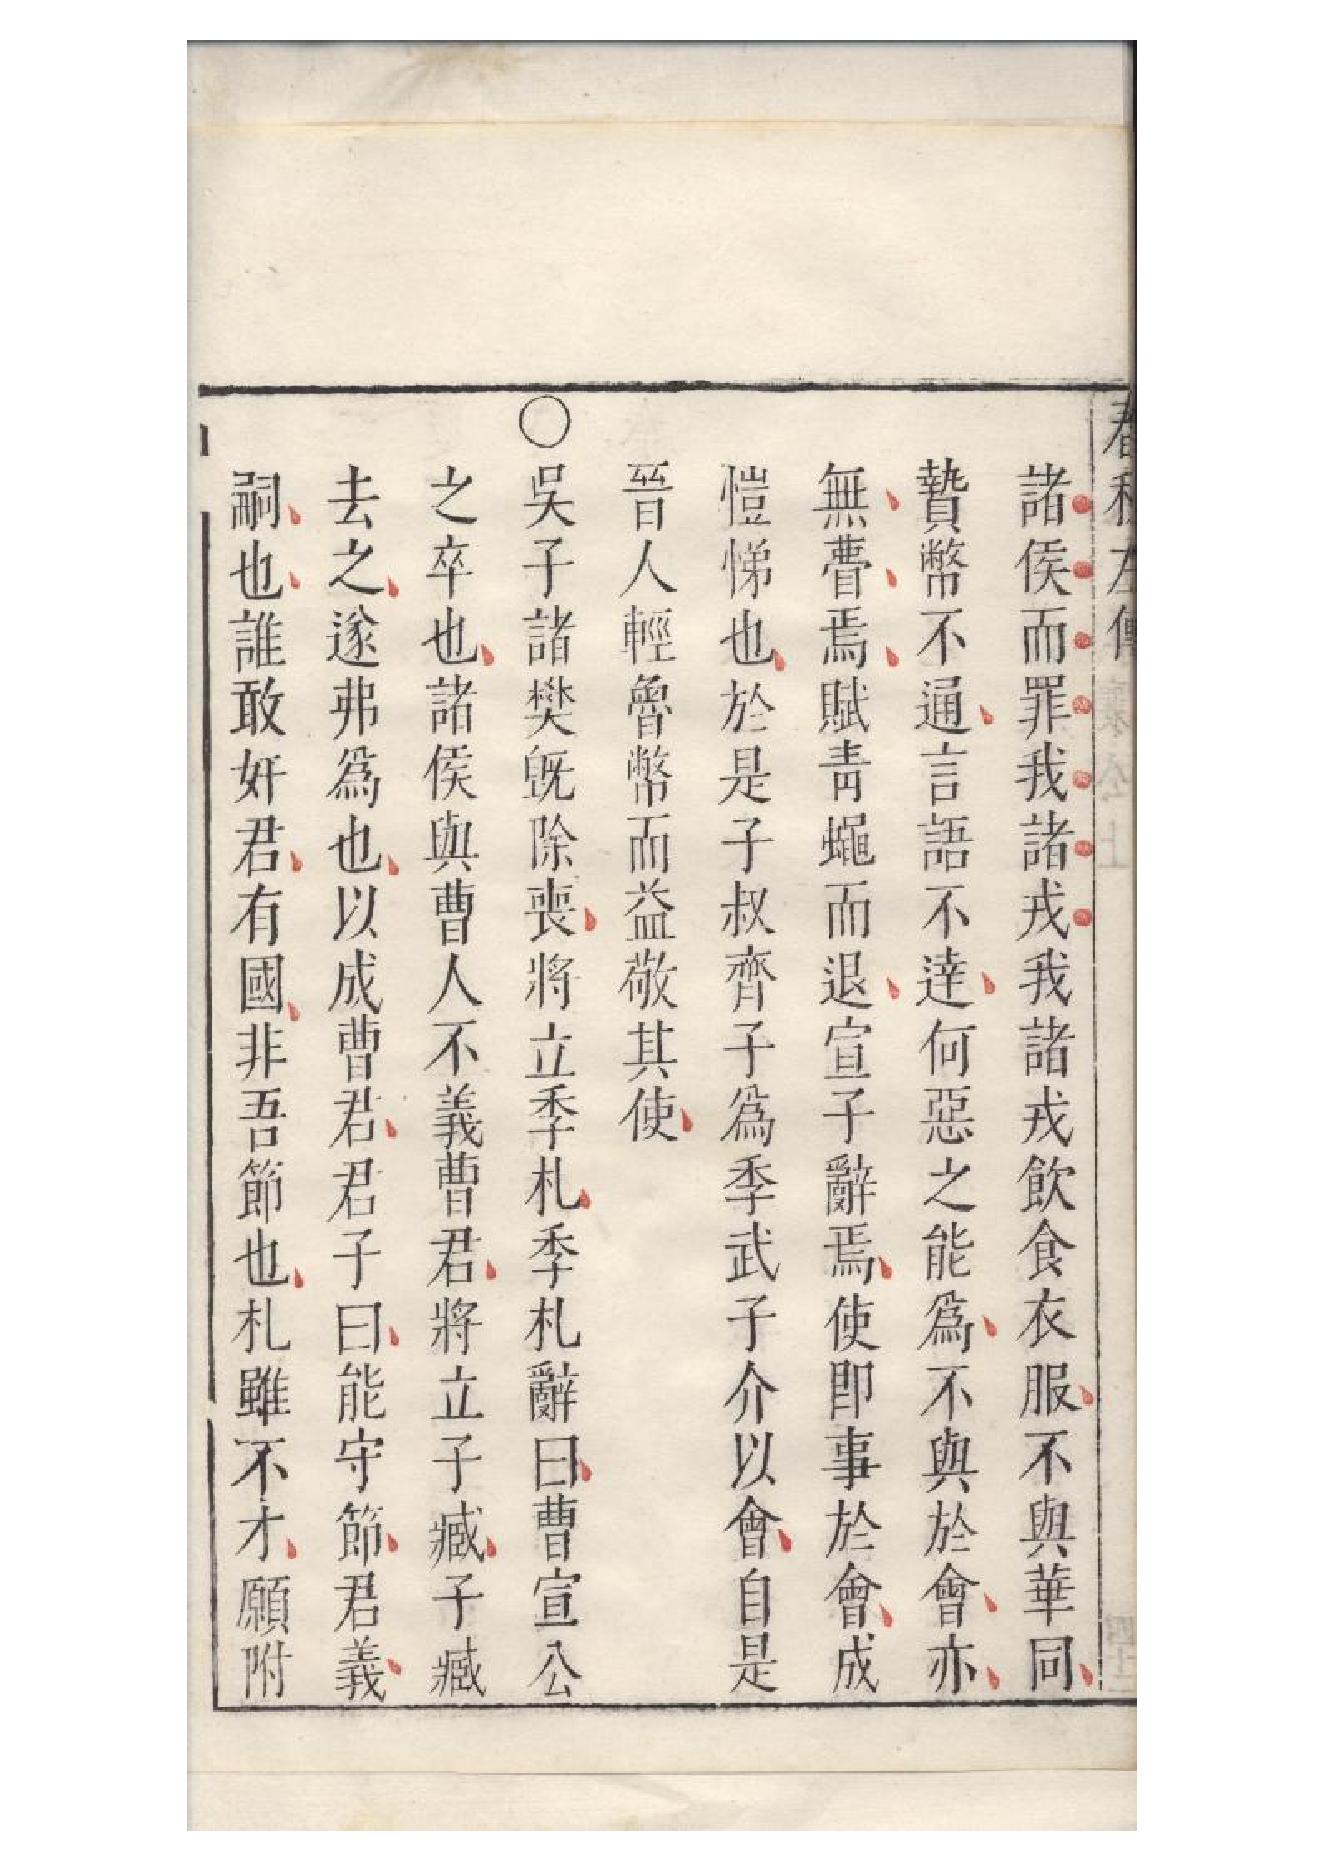 春秋左傳 襄公上
諸侯而罪我諸戎我諸戎飲食衣服不與華同
贄幣不通言語不達何惡之能爲不與於會亦
無瞢焉賦青蠅而退宣子辭焉使即事於會成
愷悌也於是子叔齊子爲季武子介以會自是
晉人輕魯幣而益敬其使
○吳子諸樊旣除喪將立季札季札辭曰曹宣公
之卒也諸侯與曹人不義曹君將立子臧子臧
去之遂弗爲也以成曹君君子曰能守節君義
嗣也誰敢奸君有國非吾節也札雖不才願附